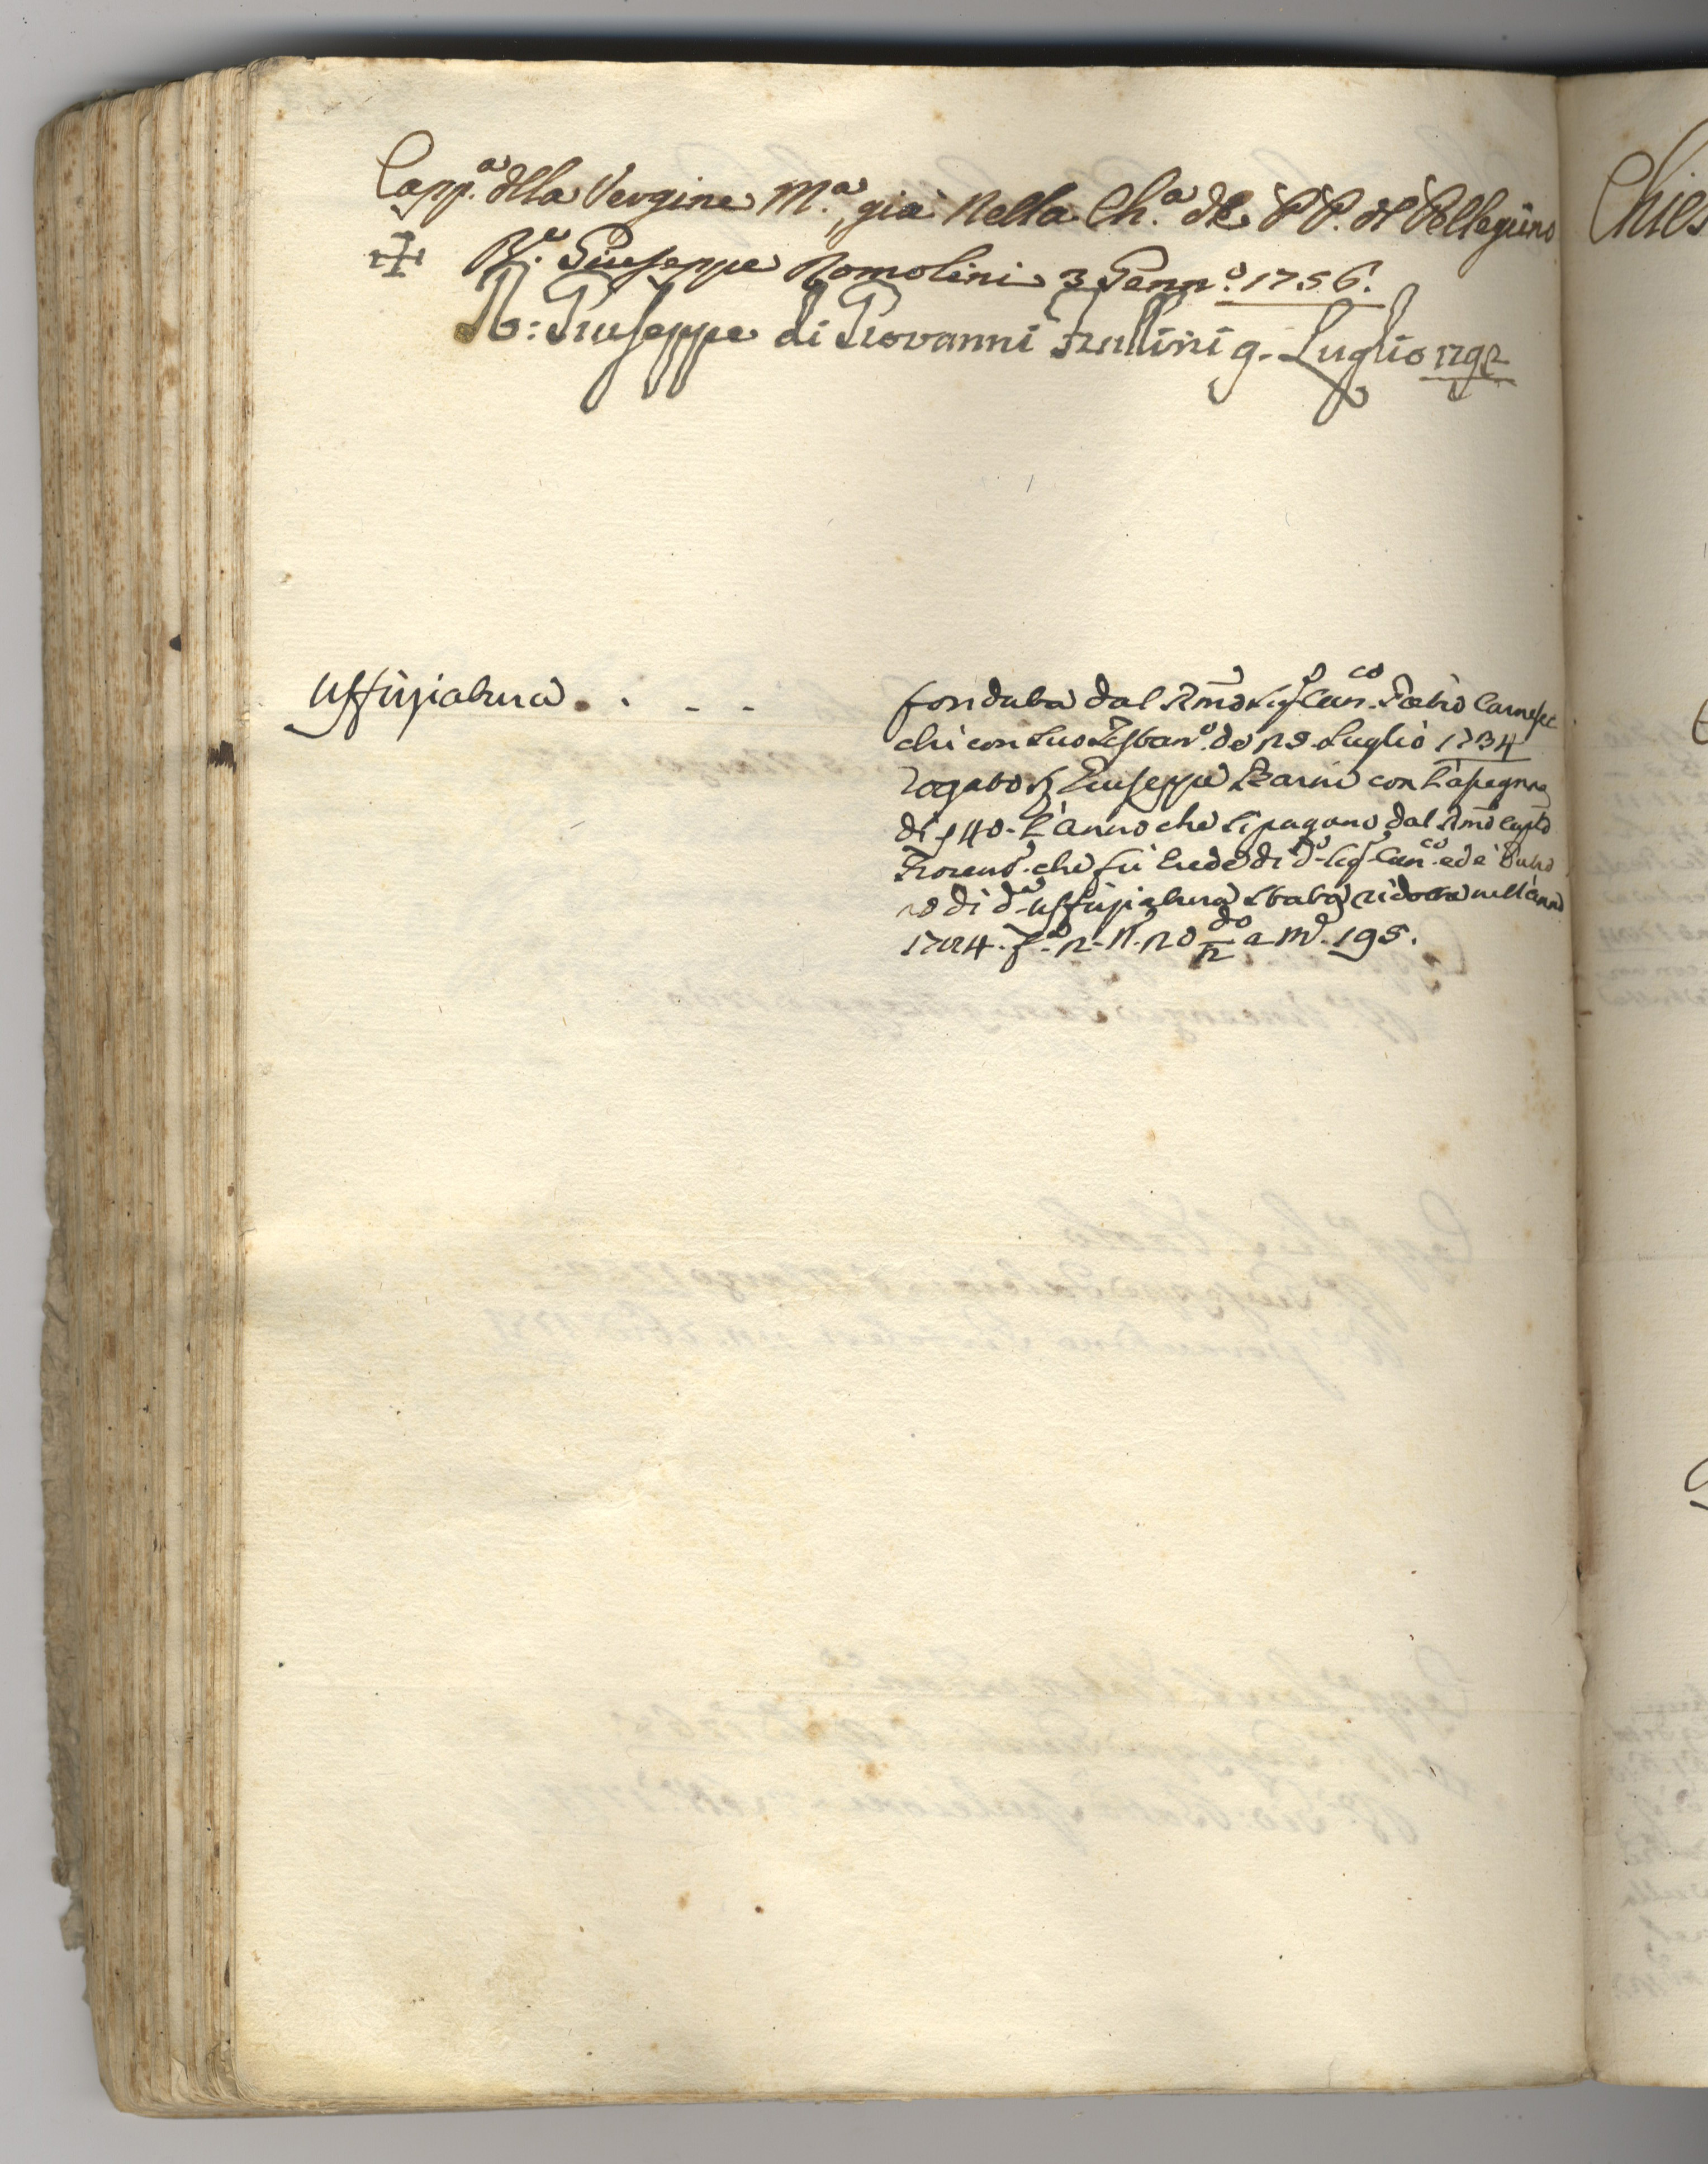 Capp.a dlla Vergine M.a già Nella Ch.a de PP. di Pellegrino
R.e Giuseppe Romolini 3 Genn.o 1756.
R: Giuseppe di Giovanni Frullini 9. Luglio 1792
Uffiziatura . . - -
fondata dal Rmo Sig Can.co Fabio Carnesec
chi con suo Testam.o de 29 Luglio 1734
rogato Giuseppe con l'asegna
di 40. l'anno che si pagano dal Rmo Capto
Fioreno. che fù Erede di do Sig Can.co ed è
no di da Uffiziatura stata ridotta nell'anno
a 195.
Chies